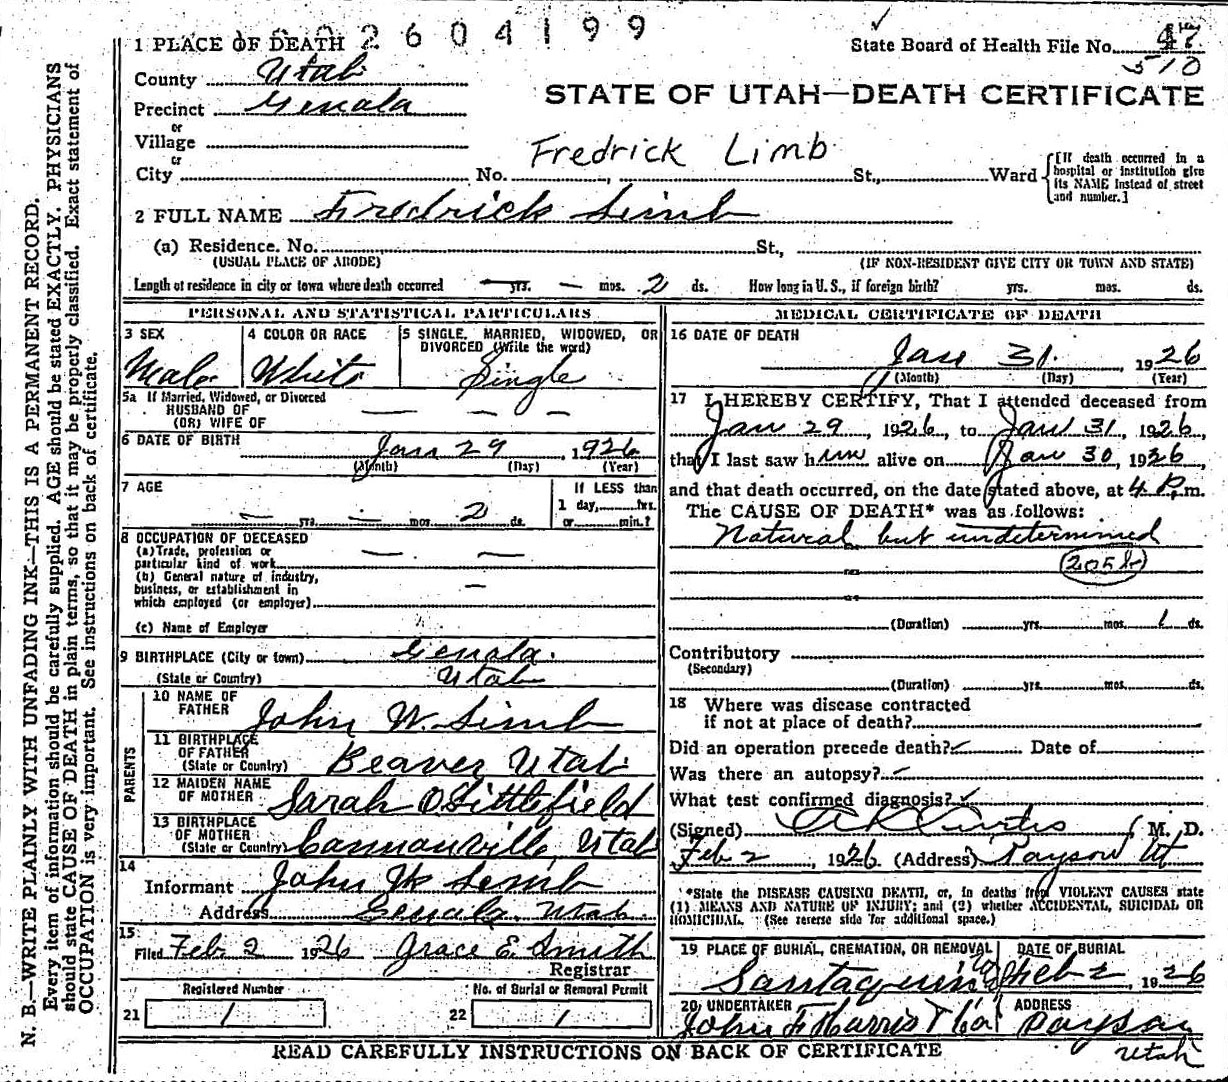 2604199
1 PLACE OF DEATH
State Board of Health File No. 47
510
County Utah
Precinct Genola
STATE OF UTAH—DEATH CERTIFICATE
or
Village
or
Fredrick Limb
City No. , St., Ward
[If death occurred in a
hospital or institution give
its NAME instead of street
and number.]
2 FULL NAME Fredrick Limb
(a) Residence. No. St.,
(USUAL PLACE OF ABODE) (IF NON-RESIDENT GIVE CITY OR TOWN AND STATE)
Length of residence in city or town where death occurred — yrs. — mos. 2 ds. How long in U. S., if foreign birth? yrs. mos. ds.
PERSONAL AND STATISTICAL PARTICULARS
3 SEX
Male
4 COLOR OR RACE
White
5 SINGLE, MARRIED, WIDOWED, OR
DIVORCED (Write the word)
Single
5a If Married, Widowed, or Divorced
HUSBAND OF
(OR) WIFE OF — — —
6 DATE OF BIRTH Jan 29, 1926
(Month) (Day) (Year)
7 AGE
— yrs. — mos. 2 ds.
If LESS than
1 day, hrs.
or min.?
8 OCCUPATION OF DECEASED
(a) Trade, profession or
particular kind of work — —
(b) General nature of industry,
business, or establishment in
which employed (or employer) —
(c) Name of Employer
9 BIRTHPLACE (City or town) Genola.
(State or Country) Utah
PARENTS
10 NAME OF
FATHER John W. Limb
11 BIRTHPLACE
OF FATHER
(State or Country) Beaver Utah
12 MAIDEN NAME
OF MOTHER Sarah O. Littlefield
13 BIRTHPLACE
OF MOTHER
(State or Country) Cannonville, Utah
14
Informant John W Limb
Address Genola, Utah
15
Filed Feb 2 1926 Grace E. Smith
Registrar
Registered Number
21 1
No. of Burial or Removal Permit
22 1
MEDICAL CERTIFICATE OF DEATH
16 DATE OF DEATH
Jan 31. 1926
(Month) (Day) (Year)
17 I HEREBY CERTIFY, That I attended deceased from
Jan 29, 1926, to Jan 31, 1926,
that I last saw him alive on Jan 30, 1926,
and that death occurred, on the date stated above, at 4 P. m.
The CAUSE OF DEATH* was as follows:
Natural but undetermined
205b
(Duration) yrs. mos. 1 ds.
Contributory
(Secondary)
(Duration) yrs. mos. ds.
18 Where was disease contracted
if not at place of death?
Did an operation precede death? ✓ Date of
Was there an autopsy? ✓
What test confirmed diagnosis? ✓
(Signed) A K Curtis M. D.
Feb 2, 1926 (Address) Payson Ut
*State the DISEASE CAUSING DEATH, or, in deaths from VIOLENT CAUSES state
(1) MEANS AND NATURE OF INJURY; and (2) whether ACCIDENTAL, SUICIDAL OR
HOMICIDAL. (See reverse side for additional space.)
19 PLACE OF BURIAL, CREMATION, OR REMOVAL
Santaquin
DATE OF BURIAL
Feb 2, 1926
20 UNDERTAKER
John F Harris
ADDRESS
Payson
Utah
READ CAREFULLY INSTRUCTIONS ON BACK OF CERTIFICATE
N. B.—WRITE PLAINLY WITH UNFADING INK—THIS IS A PERMANENT RECORD.
Every item of information should be carefully supplied. AGE should be stated EXACTLY. PHYSICIANS
should state CAUSE OF DEATH in plain terms, so that it may be properly classified. Exact statement of
OCCUPATION is very important. See instructions on back of certificate.